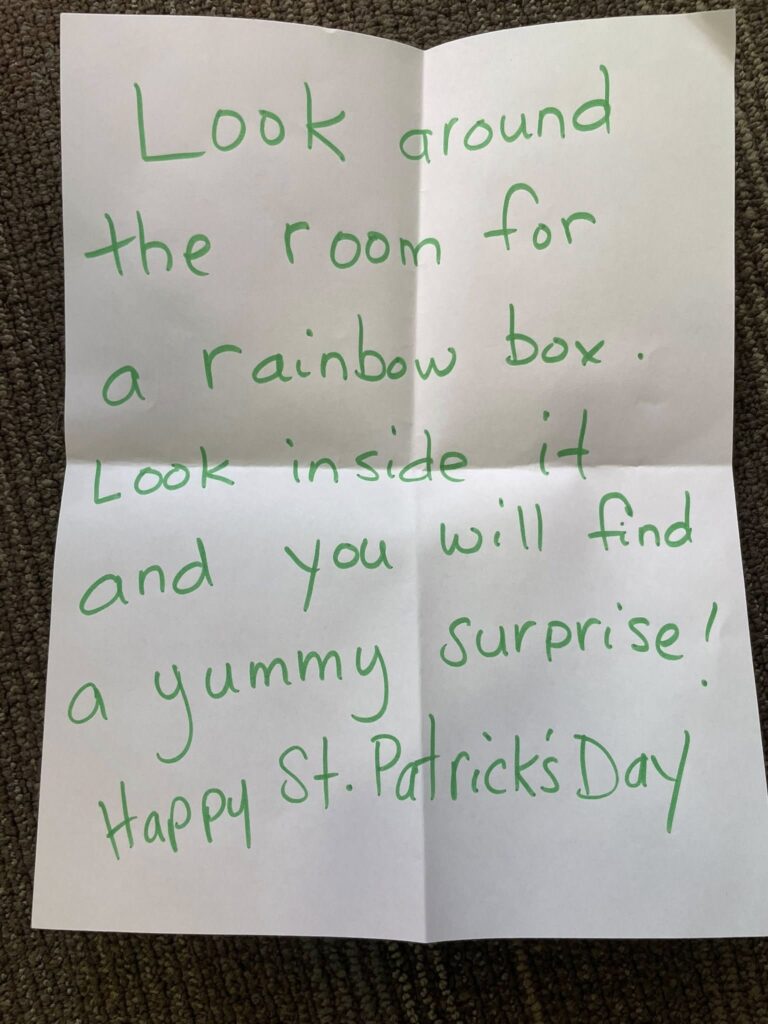 Look around
the room for
a rainbow box.
Look inside it
and you will find
a yummy surprise!
Happy St. Patrick's Day